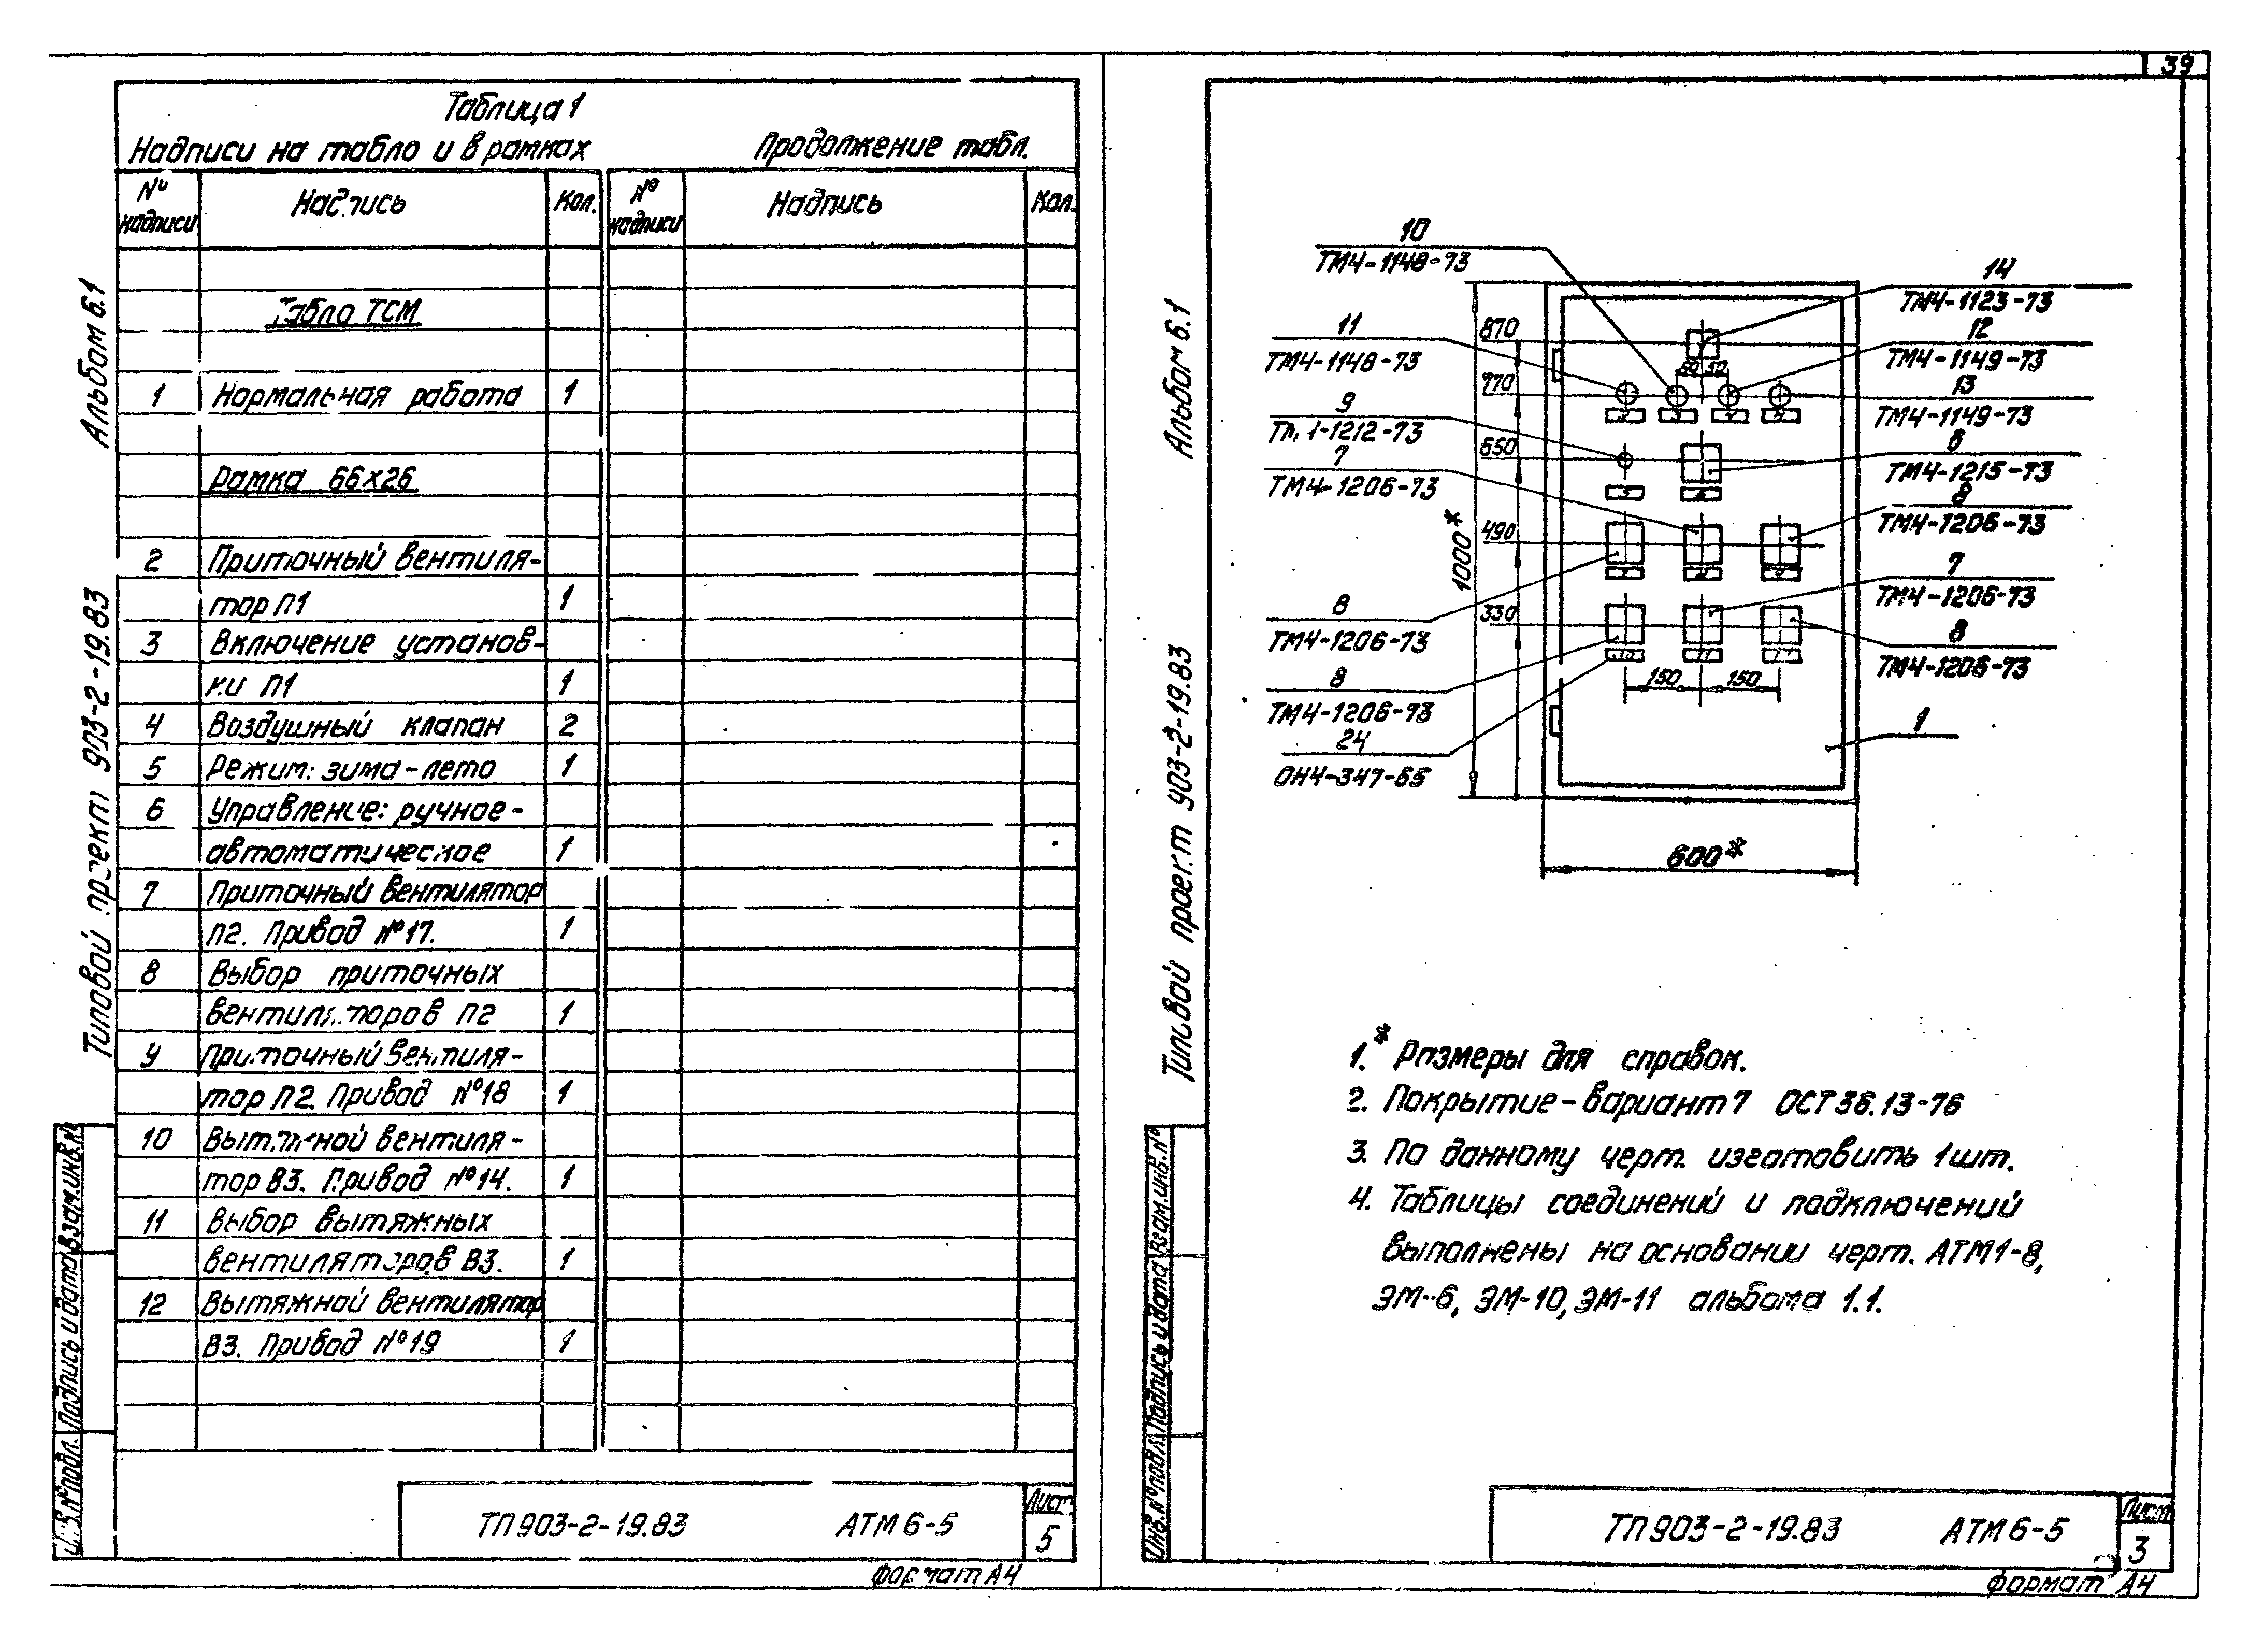 39
Таблица 1
Надписи на табло и в рамках Продолжение табл.
№ надписи Надпись Кол. № надписи Надпись Кол.
Табло ТСМ
1 Нормальная работа 1
Рамка 66х26
2 Приточный вентиля-
тор П1 1
3 Включение установ-
ки П1 1
4 Воздушный клапан 2
5 Режим: зима-лето 1
6 Управление: ручное-
автоматическое 1
7 Приточный вентилятор
П2. Привод №17. 1
8 Выбор приточных
вентиляторов П2 1
9 Приточный вентиля-
тор П2. Привод №18 1
10 Вытяжной вентиля-
тор В3. Привод №14. 1
11 Выбор вытяжных
вентиляторов В3. 1
12 Вытяжной вентилятор
В3. Привод №19 1
Альбом 6.1
Типовой проект 903-2-19.83
Взам.инв.№
Подпись и дата
Инв.№подл.
ТП903-2-19.83 АТМ6-5
Лист
5
Формат А4
Альбом 6.1
Типовой проект 903-2-19.83
Взам.инв.№
Подпись и дата
Инв.№подл.
10
ТМ4-1148-73
11
ТМ4-1148-73
9
ТМ4-1212-73
7
ТМ4-1206-73
8
ТМ4-1206-73
8
ТМ4-1206-73
24
ОН4-347-65
14
ТМ4-1123-73
12
ТМ4-1149-73
13
ТМ4-1149-73
6
ТМ4-1215-73
8
ТМ4-1206-73
7
ТМ4-1206-73
8
ТМ4-1206-73
1
870
770
650
490
330
1000*
150 150
600*
10 11
1.* Размеры для справок.
2. Покрытие-вариант 7 ОСТ36.13-76
3. По данному черт. изготовить 1шт.
4. Таблицы соединений и подключений
выполнены на основании черт. АТМ1-8,
ЭМ-6, ЭМ-10, ЭМ-11 альбома 1.1.
ТП903-2-19.83 АТМ6-5
Лист
3
Формат А4